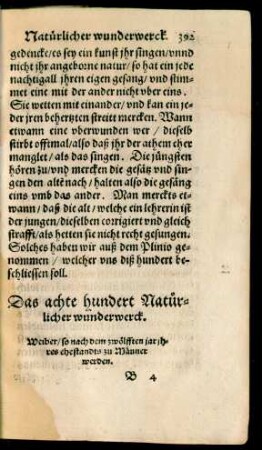 Natürlicher wunderwerck. 392
gedencke/es sey ein kunst jhr singen/vnnd
nicht jhr angeborne natur/so hat ein jede
nachtigall jhren eigen gesang/vnd stim-
met eine mit der ander nicht vber eins.
Sie wetten mit einander/vnd kan ein je-
der jren behertzten streitt mercken. Wann
etwann eine vberwunden wer/dieselb
stirbt offtmal/also daß jhr der athem eher
manglet/als das singen. Die jüngsten
hören zu/vnd mercken die gesätz vnd sin-
gen den altē nach/halten also die gesäng
eins vmb das ander. Man merckts et-
wann/daß die alt/welche ein lehrerin ist
der jungen/dieselben corrigiert vnd gleich
strafft/als hetten sie nicht recht gesungen.
Solches haben wir auß dem Plinio ge-
nommen/welcher vns diß hundert be-
schliessen soll.
Das achte hundert Natür-
licher wunderwerck.
Weiber/so nach dem zwölfften jar jh-
res ehestandts zu Männer
werden.
B 4